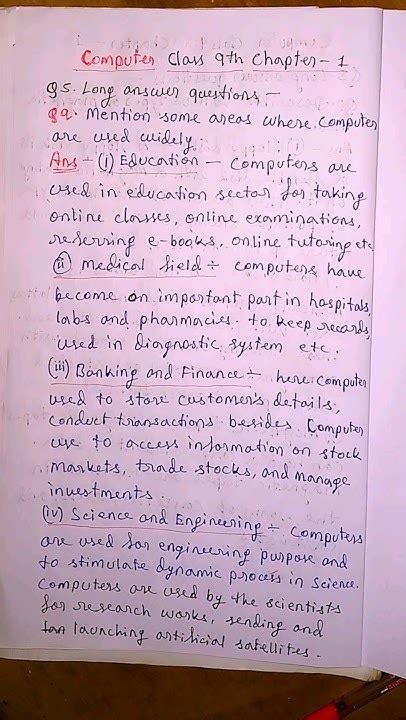 Computer Class 9th Chapter - 1
Q5. Long answer questions, -
Q9. Mention some areas where computer
are used widely.
Ans - (i) Education - computers are
used in education sector for taking
online classes, online examinations,
referring e-books, online tutoring etc
(ii) Medical field ÷ computers have
become on important part in hospitals,
labs and pharmacies. to keep records,
used in diagnostic system etc.
(iii) Banking and Finance ÷ here computer
used to store customer's details,
conduct transactions besides Computer
use to access information on stock
markets, trade stocks, and manage
investments.
(iv) Science and Engineering ÷ Computers
are used for engineering purpose and
to stimulate dynamic process in science.
Computers are used by the scientists
for research works, sending and
launching artificial satellites.